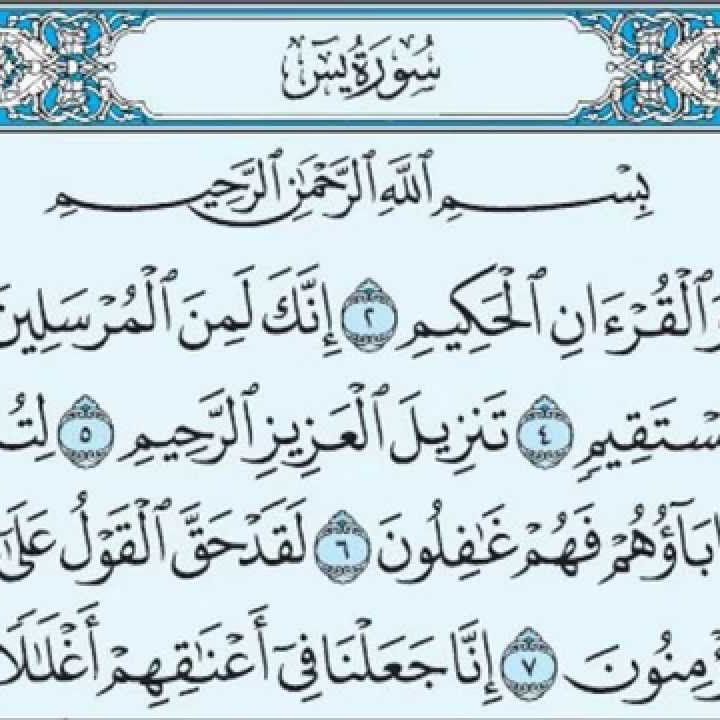 سُورَةُ يسٓ
بِسْمِ ٱللَّهِ ٱلرَّحْمَٰنِ ٱلرَّحِيمِ
ٱلْقُرْءَانِ ٱلْحَكِيمِ ٢ إِنَّكَ لَمِنَ ٱلْمُرْسَلِينَ
سْتَقِيمٍ ٤ تَنزِيلَ ٱلْعَزِيزِ ٱلرَّحِيمِ ٥ لِتُ
ابَآؤُهُمْ فَهُمْ غَٰفِلُونَ ٦ لَقَدْ حَقَّ ٱلْقَوْلُ عَلَىٰٓ
ؤْمِنُونَ ٧ إِنَّا جَعَلْنَا فِىٓ أَعْنَٰقِهِمْ أَغْلَٰلًا